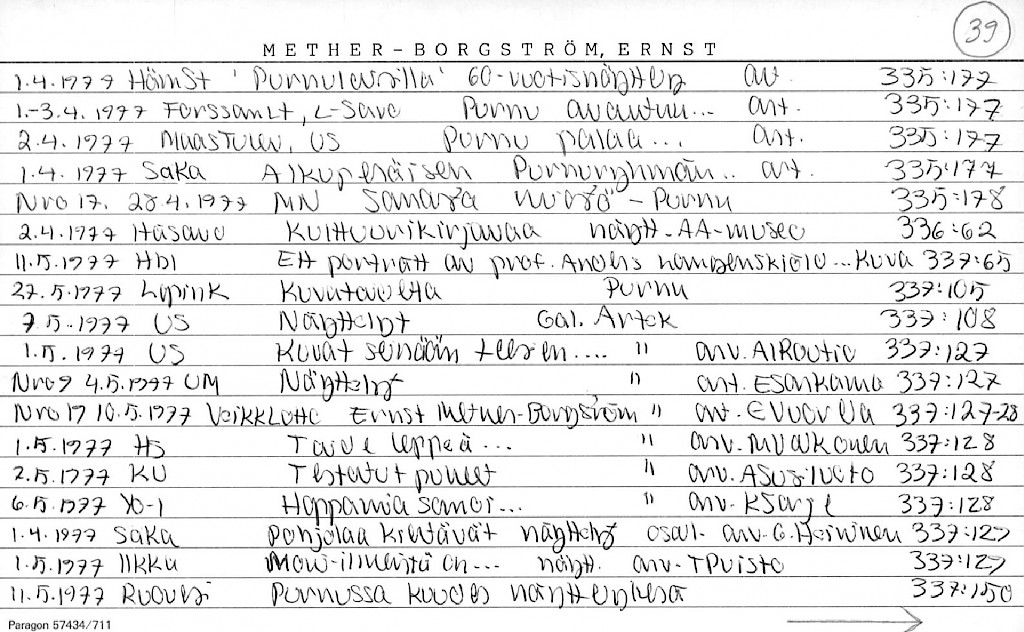 39
METHER-BORGSTRÖM, ERNST
1.4.1977 HämSt 'Purnulaisilla' 60-vuotisnäyttely av. 335:177
1.-3.4.1977 ForssanLt, L-Savo Purnu avautuu... art. 335:177
2.4.1977 MaasTulev, US Purnu palaa... art. 335:177
1.4.1977 SaKa Alkuperäisen Purnuryhmän.. art. 335:177
Nro 17. 28.4.1977 MN Samaza - Purnu 335:178
2.4.1977 Häsano Kulttuurikirjavaa näytt. AA-museo 336:62
11.5.1977 Hbl Ett porträtt av prof. Anders ... Kuva 337:65
27.5.1977 Kuvataidetta Purnu 337:105
7.5.1977 US Näyttelyt Gal. Artek 337:108
1.5.1977 US Kuvat seinään teesen.... " arv. AIRautio 337:127
Nro 9 4.5.1977 UM Näyttelyt " art. ESarkamo 337:127
Nro 17 10.5.1977 VeikkLotto Ernst Mether-Borgström " art. EVuorela 337:127-28
1.5.1977 HS Taide leppeä... " arv. MValkonen 337:128
2.5.1977 KU Testatut puheet " arv. ASusiluoto 337:128
6.5.1977 Yo-l Happamia sanoi... " arv. KSarje 337:128
1.4.1977 SaKa Pohjolaa kiertävät näyttelyt osal. arv. G. Heivinen 337:129
1.5.1977 Ilkka on... näytt. arv. TPuisto 337:129
11.5.1977 Ruovesi Purnussa kuudes näyttelykesä 337:150
Paragon 57434/711